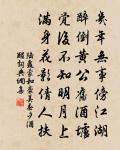 幾年無事傍江湖
醉倒黃公舊酒壚
覺後不知明月上
滿身花影倩人扶
陸龜蒙和襲美春夕酒
醒詞典集